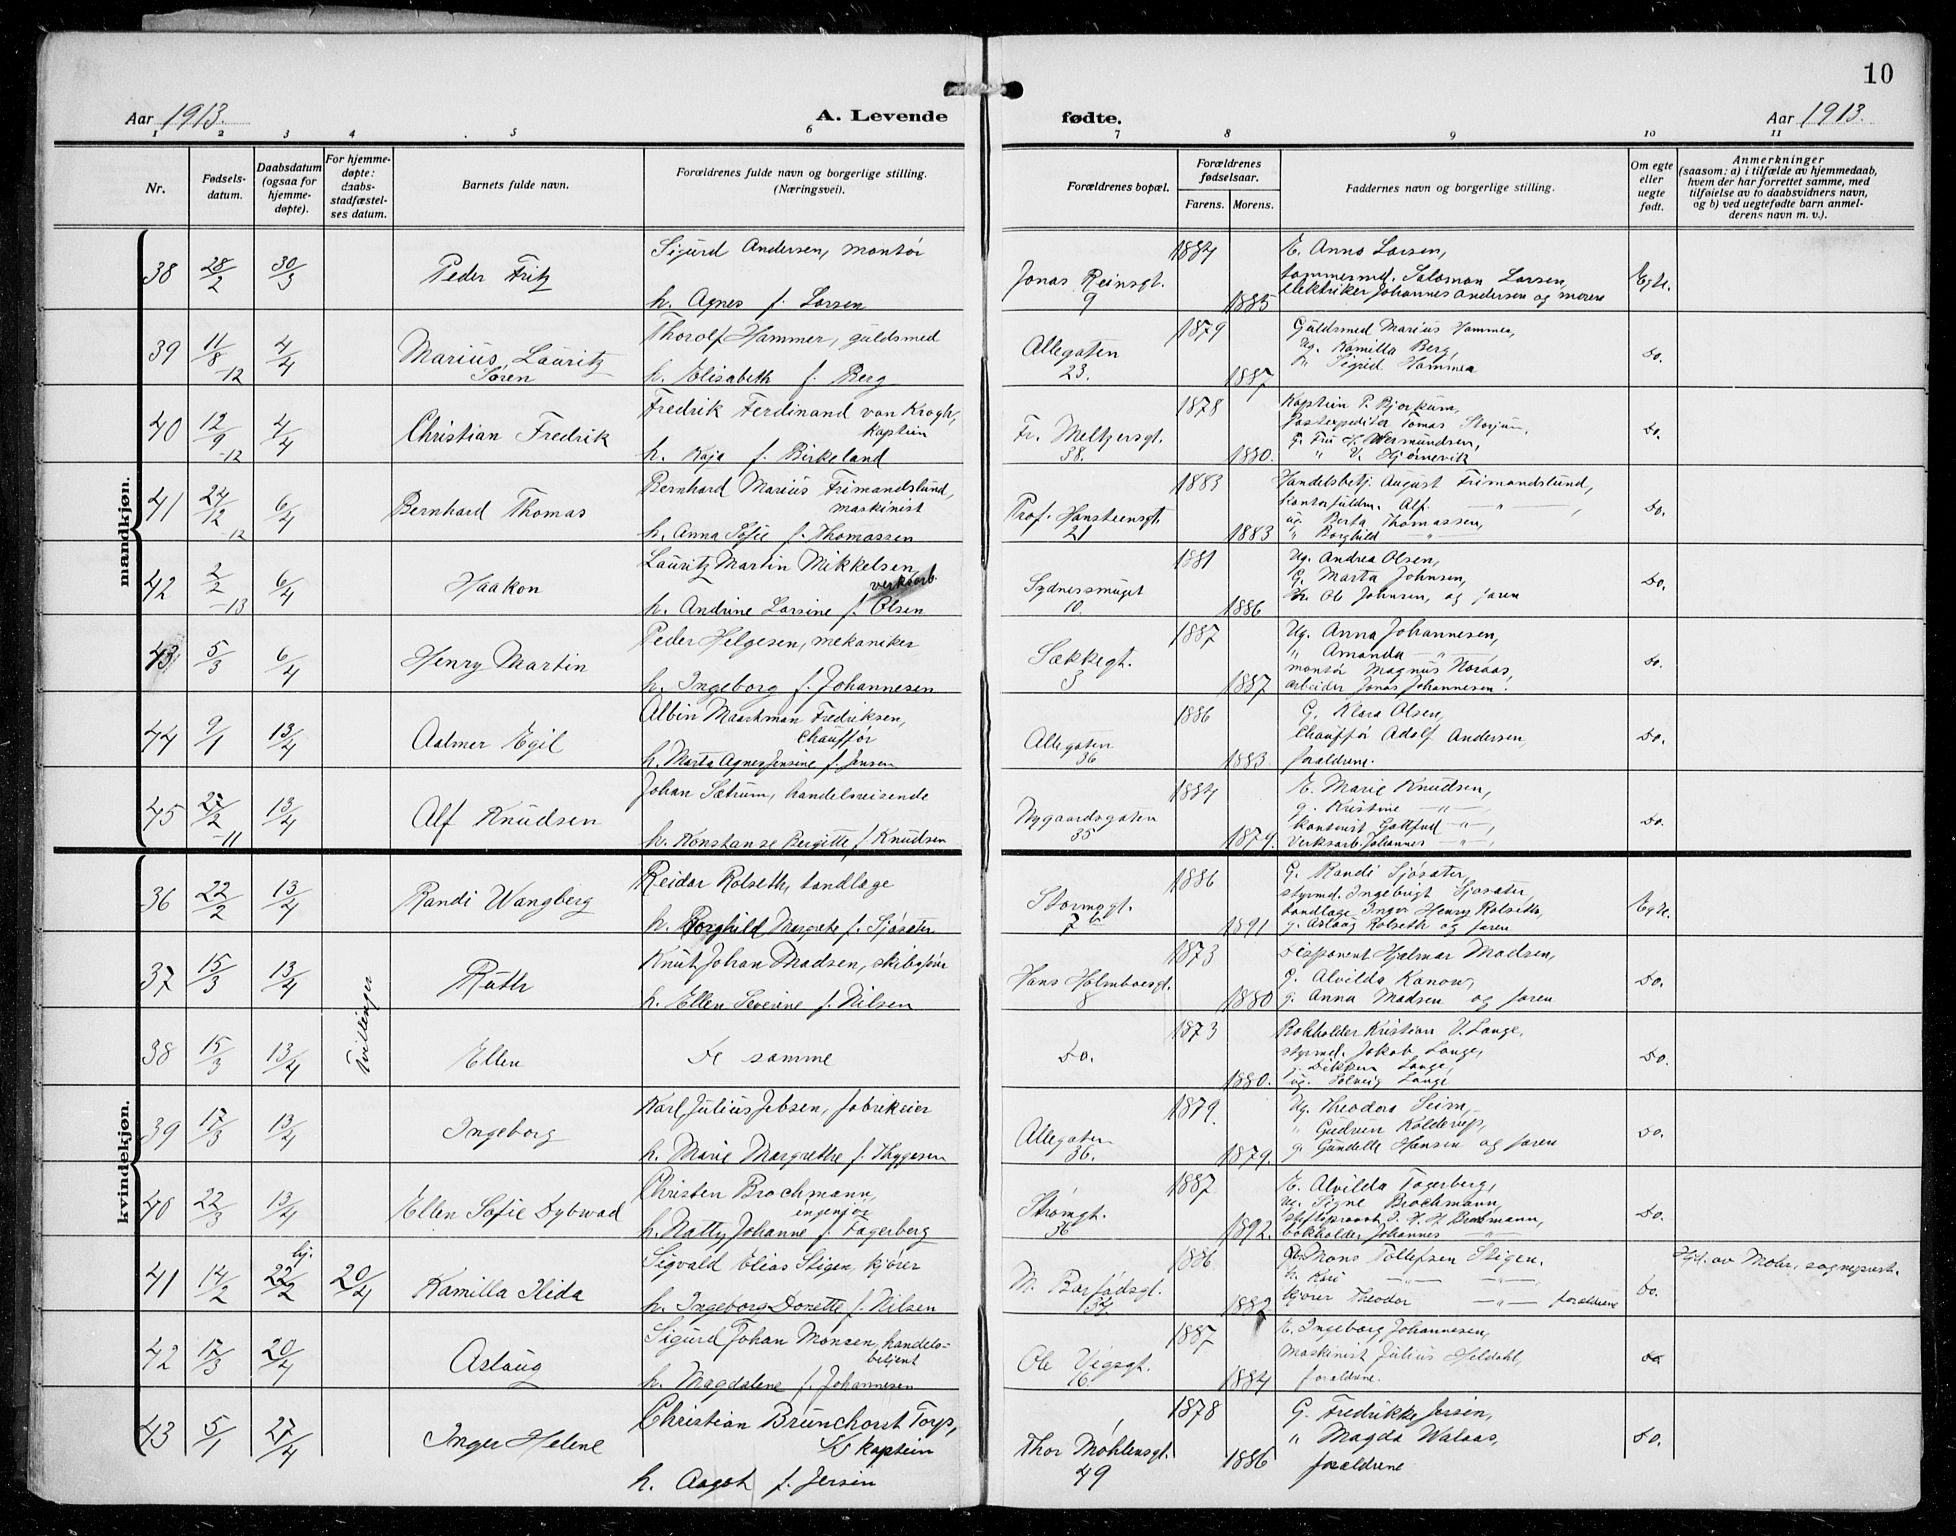 10
Aar 1913.
A. Levende
fødte.
Aar 1913.
1 2 3 4 5 6 7 8 9 10 11
Nr.
Fødsels-
datum.
Daabsdatum
(ogsaa for
hjemme-
døpte).
For hjemme-
døpte:
daabs-
stadfæstel-
ses datum.
Barnets fulde navn.
Forældrenes fulde navn og borgerlige stilling.
(Næringsvei).
Forældrenes bopæl.
Forældrenes
fødselsaar.
Farens. Morens.
Faddernes navn og borgerlige stilling.
Om egte
eller
uegte
født.
Anmerkninger
(saasom: a) i tilfælde av hjemmedaab,
hvem der har forrettet samme, med
tilføielse av to daabsvidners navn,
og b) ved uegtefødte barn anmel-
derens navn m. v.).
mandkjøn.
38 28/2 30/3 Peder Fritz
Sigurd Andersen, montør
h. Agnes f. Larsen
Jonas Reinsgt.
9
1884
1885
E. Anna Larsen,
tømmesmd. Salomon Larsen,
elektriker Johannes Andersen og moren
Egte.
39 11/8 -12 4/4 Marius Lauritz
Søren
Thorolf Hammer, guldsmed
h. Elisabeth f. Berg
Allegaten
23.
1879
1887
Guldsmed Marius Hammer,
Ug. Kamilla Berg,
" Sigrid Hammer
Do.
40 12/9 -12 4/4 Christian Fredrik
Fredrik Ferdinand von Krogh,
kaptein
h. Kaja f. Birkeland
Fr. Meltzersgt.
38.
1878
1880.
Kaptein P. Bjorkum,
postexpeditør Tomas Storjum,
G. Fru H. Wermundsen,
" V. Hjørnevik
Do.
41 24/12 -12 6/4 Bernhard Thomas
Bernhard Marius Frimandslund,
maskinist
h. Anna Sofie f. Thomassen
Prof. Hansteensgt.
21
1883
1883
Handelsbetj. August Frimandslund,
kontorfuldm. Alf. — " —,
ug. Berta Thomassen,
" Borghild — " —
Do.
42 2/2 -13 6/4 Haakon
Lauritz Martin Mikkelsen,
verksarb.
h. Andrine Larsine f. Olsen
Sydnessmuget
10.
1881
1886
Ug. Andrea Olsen,
G. Marta Johnsen,
Hr. Ob Johnsen, og faren
Do.
43 5/3 6/4 Henry Martin
Peder Helgesen, mekaniker
h. Ingeborg f. Johannesen
Sækkegt.
3
1887
1887
Ug. Anna Johannesen,
" Amanda — " —,
montør Magnus Noraas,
arbeider Jonas Johannesen.
Do.
44 9/1 13/4 Aalmer Egil
Albin Maarkman Fredriksen,
Chauffør
h. Marta Agnes Jensine f. Jensen
Allegaten
36
1886
1883.
G. Klara Olsen,
Chauffør Adolf Andersen,
forældrene.
Do.
45 27/2 -11 13/4 Alf Knudsen
Johan Sætrum, handelsreisende
h. Konstanse Bergitte f. Knudsen
Nygaardsgaten
35
1884
1879.
E. Marie Knudsen,
g. Kristine — " —,
kontorist Gottfred — " —,
Verksarb. Johannes — " —,
Do.
kvindekjøn.
36 22/2 13/4 Randi Wangberg
Reidar Rolseth, tandlæge
h. Borghild Margrete f. Sjøsæter
Stormsgt.
7 b
1886
1891
G. Randi Sjøsæter,
styrmd. Ingebrigt Sjøsæter,
tandlæge Inger Henry Rolseth,
g. Aslaug Rolseth og faren
Egte.
37 15/3 13/4 Ruth
Tvillinger
Knut Johan Madsen, skibsfører
h. Ellen Severine f. Nilsen
Hans Holmboesgt.
8
1873
1880
Disponent Hjalmar Madsen,
G. Alvilda Kanow,
g. Anna Madsen og faren
Do.
38 15/3 13/4 Ellen
De samme
Do.
1873
1880.
Bokholder Kristian V. Lange,
styrmd. Jakob Lange,
g. Dikken Lange,
ug. Solveig Lange
Do.
39 17/3 13/4 Ingeborg
Karl Julius Jebsen, fabrikeier
h. Marie Margrethe f. Thygesen
Allegaten
36.
1879.
1879.
Ug. Theodora Seim,
" Gudrun Kolderup,
g. Gundelle Hansen og faren
Do.
40 22/3 13/4 Ellen Sofie Dybwad
Christen Brochmann,
ingeniør
h. Natty Johanne f. Fagerberg
Strømgt.
36
1887
1892.
E. Alvilda Fagerberg,
ug. Signe Brochmann,
stiftsprovst J. H. H. Brochmann,
bokholder Johannes — " —
Do.
41 14/2 hj. 22/2 20/4 Kamilla Ilida
Sigvald Elias Stigen, kjører
h. Ingeborg Donette f. Nilsen
M. Barfødsgt.
37.
1886
1882
Mons Tollefsen Stigen.
h. Kari — " — — " —
kjører Theodor — " — forældrene
Do.
Hjd. av Mohr, sogneprest.
42 17/3 20/4 Aslaug
Sigurd Johan Monsen, handels-
betjent
h. Magdalene f. Johannesen
Ole Vigsgt.
16.
1887
1884
E. Ingeborg Johannesen,
Maskinist Julius Heldahl,
forældrene.
do
43 5/1 27/4 Inger Helene
Christian Brunchorst Torp,
kaptein
h. Aagot f. Jersin
Thor Møhlensgt.
49
1878
1886
G. Fredrikke Jersin,
" Magda Walaas,
forældrene
Do.